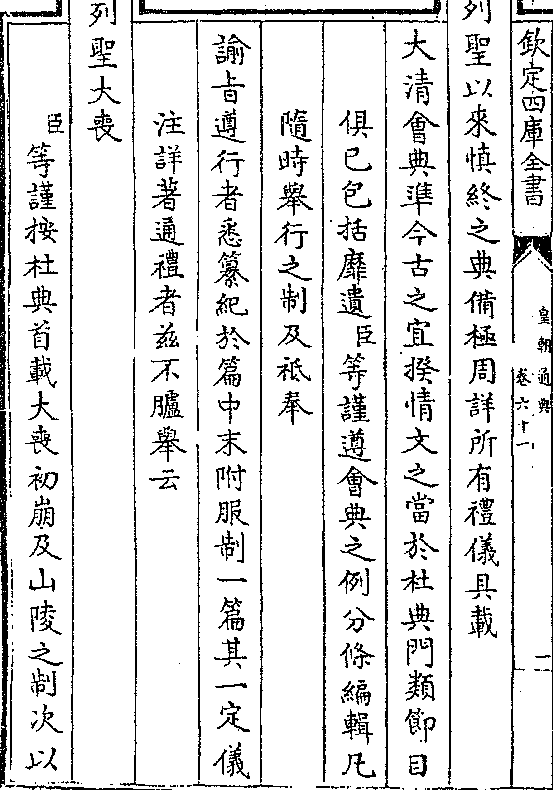 欽定四庫全書
皇朝通典
卷六十一
二
列聖以來慎終之典備極周詳所有禮儀具載
大清會典準今古之宜揆情文之當於杜典門類節目
俱已包括靡遺臣等謹遵會典之例分條編輯凡
隨時舉行之制及祗奉
諭旨遵行者悉纂紀於篇中末附服制一篇其一定儀
注詳著通禮者茲不臚舉云
列聖大喪
臣等謹按杜典首載大喪初崩及山陵之制次以